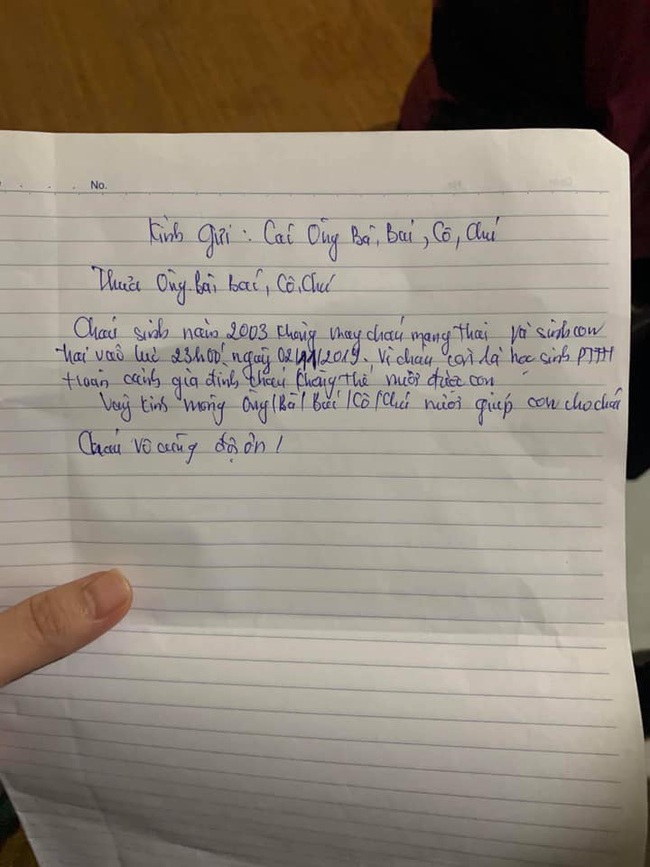 No.
Kính gửi: Các Ông Bà, Bác, Cô, Chú
Thưa Ông, Bà, Bác, Cô, Chú
Cháu sinh năm 2003 không may cháu mang thai và sinh con
trai vào lúc 23h00' ngày 02/11/2019. Vì cháu còn là học sinh PTTH
hoàn cảnh gia đình cháu không thể nuôi được con
Vậy kính mong Ông/Bà/Bác/Cô/Chú nuôi giúp con cho cháu
Cháu vô cùng đội ơn!